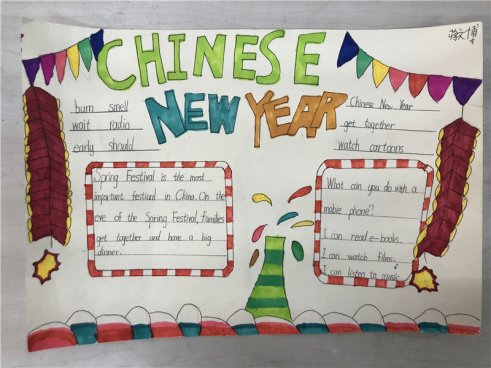 蒋文博
CHINESE
NEW YEAR
burn smell
wait radio
early should
Chinese New Year
get together
watch cartoons
Spring Festival is the most
important festiunl in China. On the
eve of the Spring Festival, families
get together and have a big
dinner.
What can you do with a
mobie phone?
I can read e-books.
I can watch films.
I can listen to music.